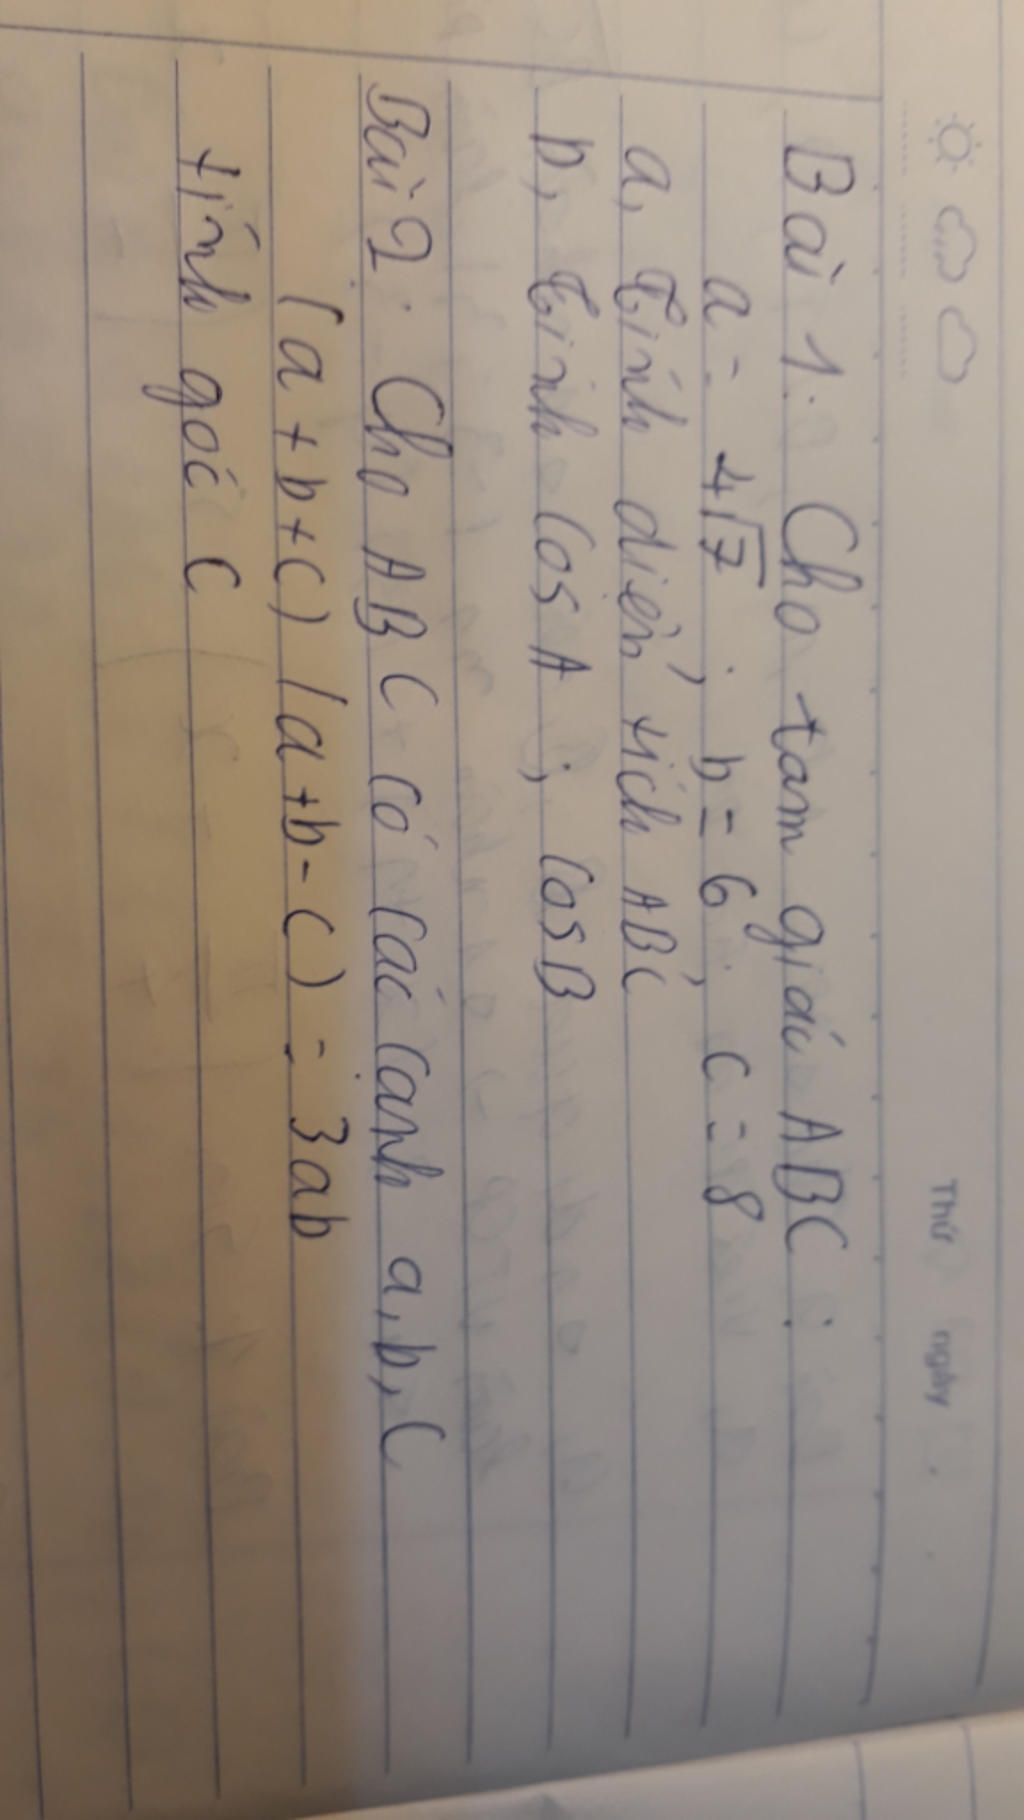 Thứ ngày
Bài 1: Cho tam giác ABC:
a = 4√7; b = 6; c = 8
a, Tính diện tích ABC
b, Tính cos A; cos B
Bài 2: Cho ABC có các cạnh a, b, c
(a + b + c) (a + b - c) = 3ab
tính góc C